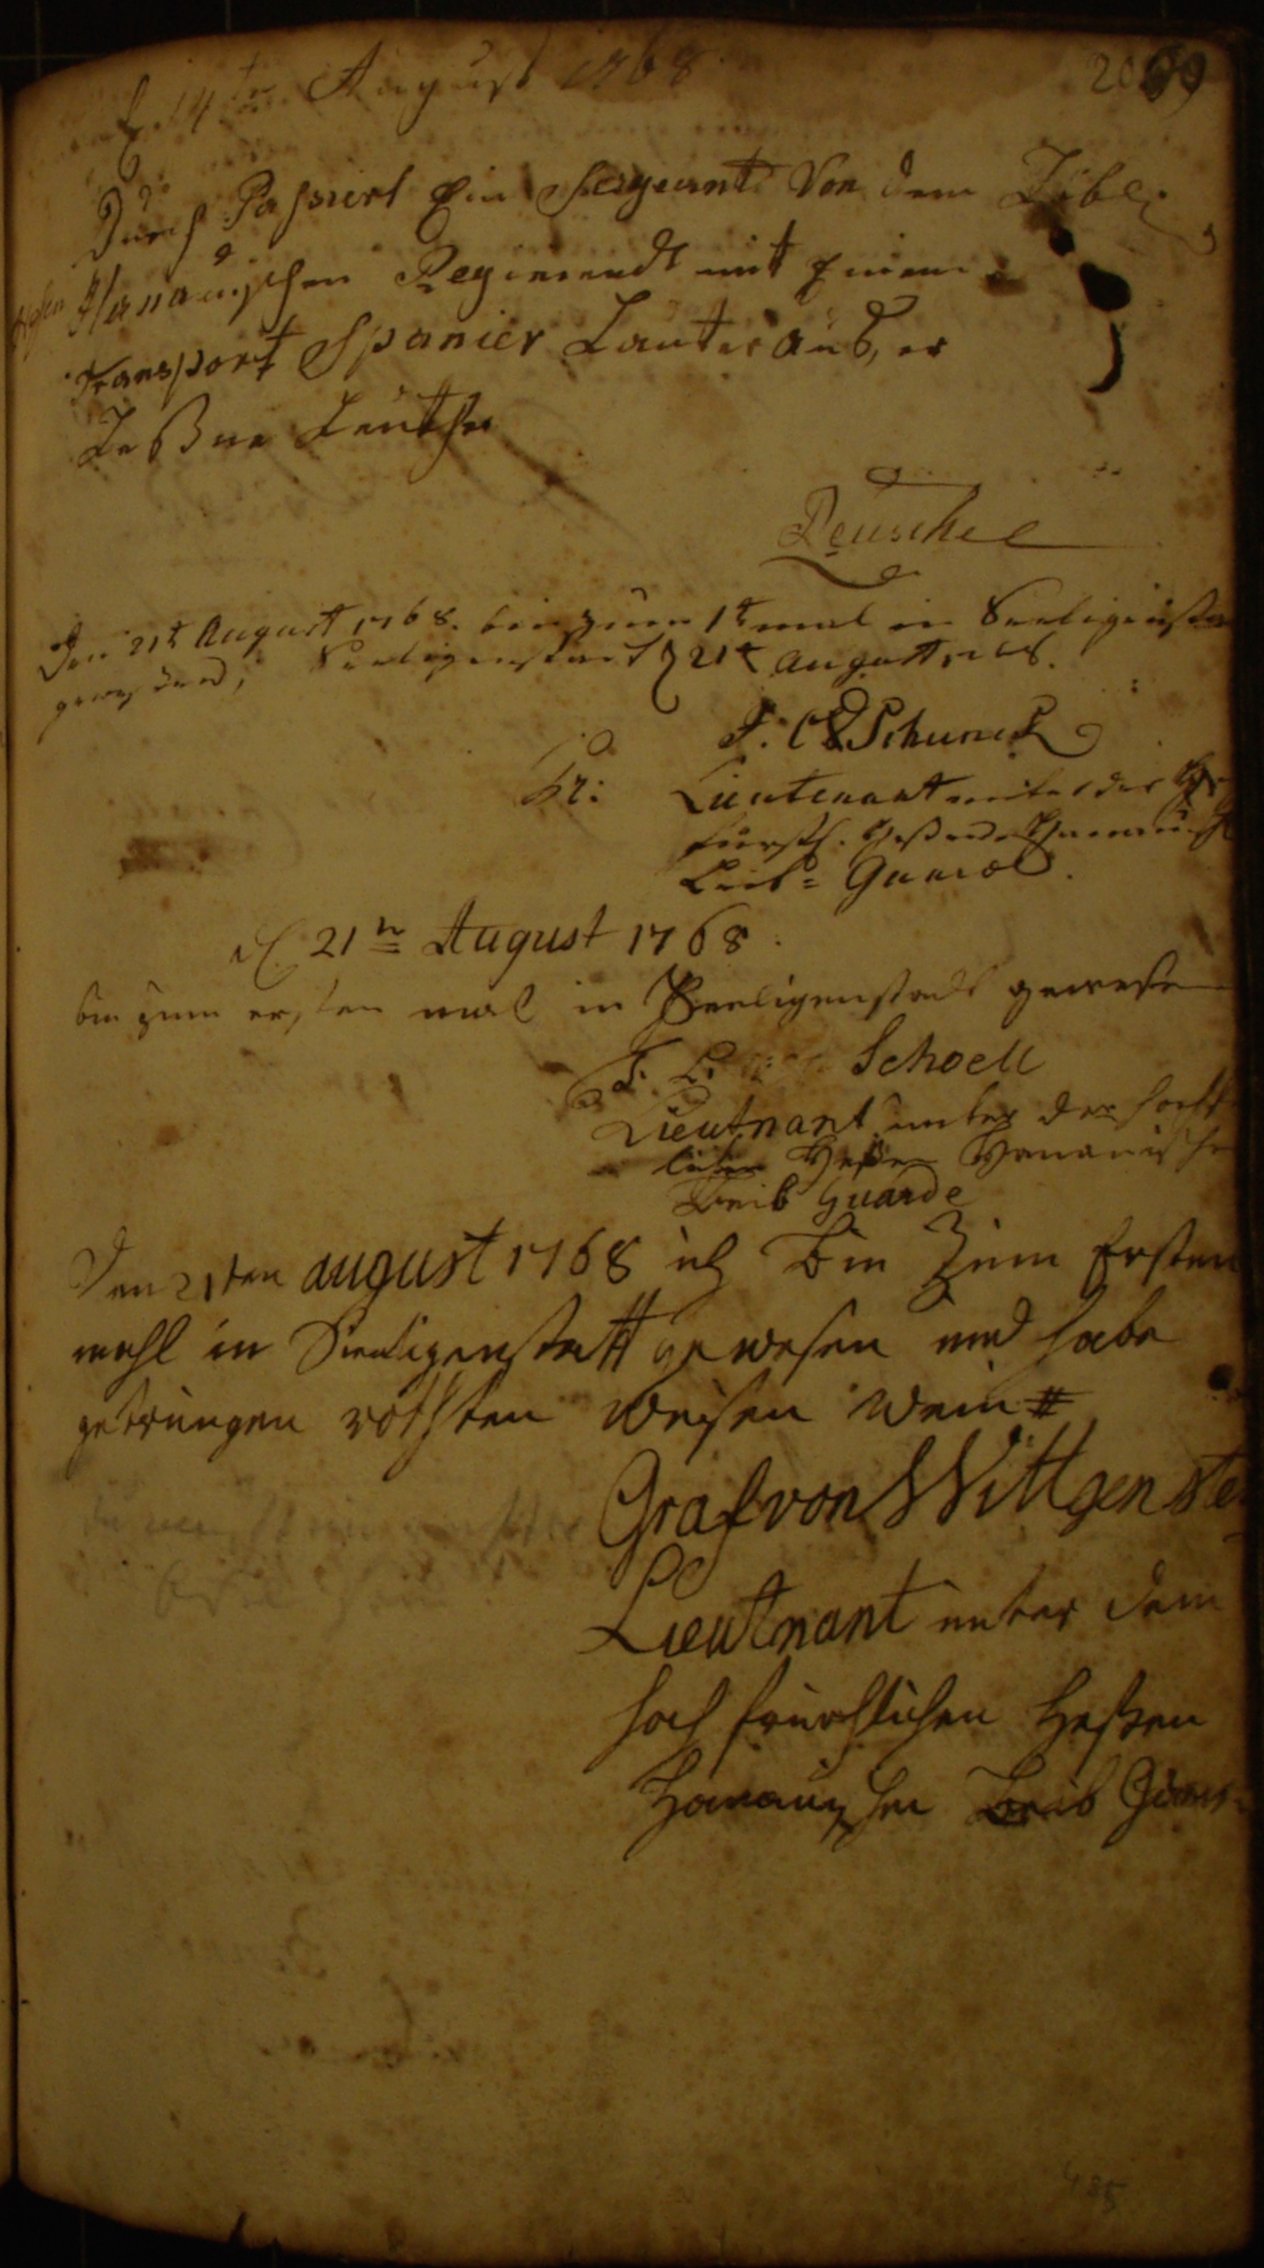 d. 14ten August 1768
2009
Durch Passiert Ein Sergeant Von dem Löbl.
Hessen Hanauischen Regiemendt mit Einem
Transport Spanier Lauter aus, er
Leßne Leuthe
Reuschel
Den 21t August 1768. bin zum 1t mal in Seeligenstat
gewesen, Seeligenstatt d 21t August 1768.
F. C. Schunck
Lieutenant unter der
fürstl. Heßen Hanauisch
Leib = Guarde.
d. 21tn August 1768.
bin zum ersten mal in Seeligenstadt gewesen
F. L. Schoell
Lieutnant unter der hochfürst
lichen Heßen Hanauische
Leib Guarde
Den 21ten august 1768 ich Bin Zum Ersten
mahl in Seeligenstatt gewesen und habe
getrungen rothten weisen wein #
Graf von Wittgenste
Lieutnant unter dem
hoch fürschlichen Heßen
Hanauischen Leib
485